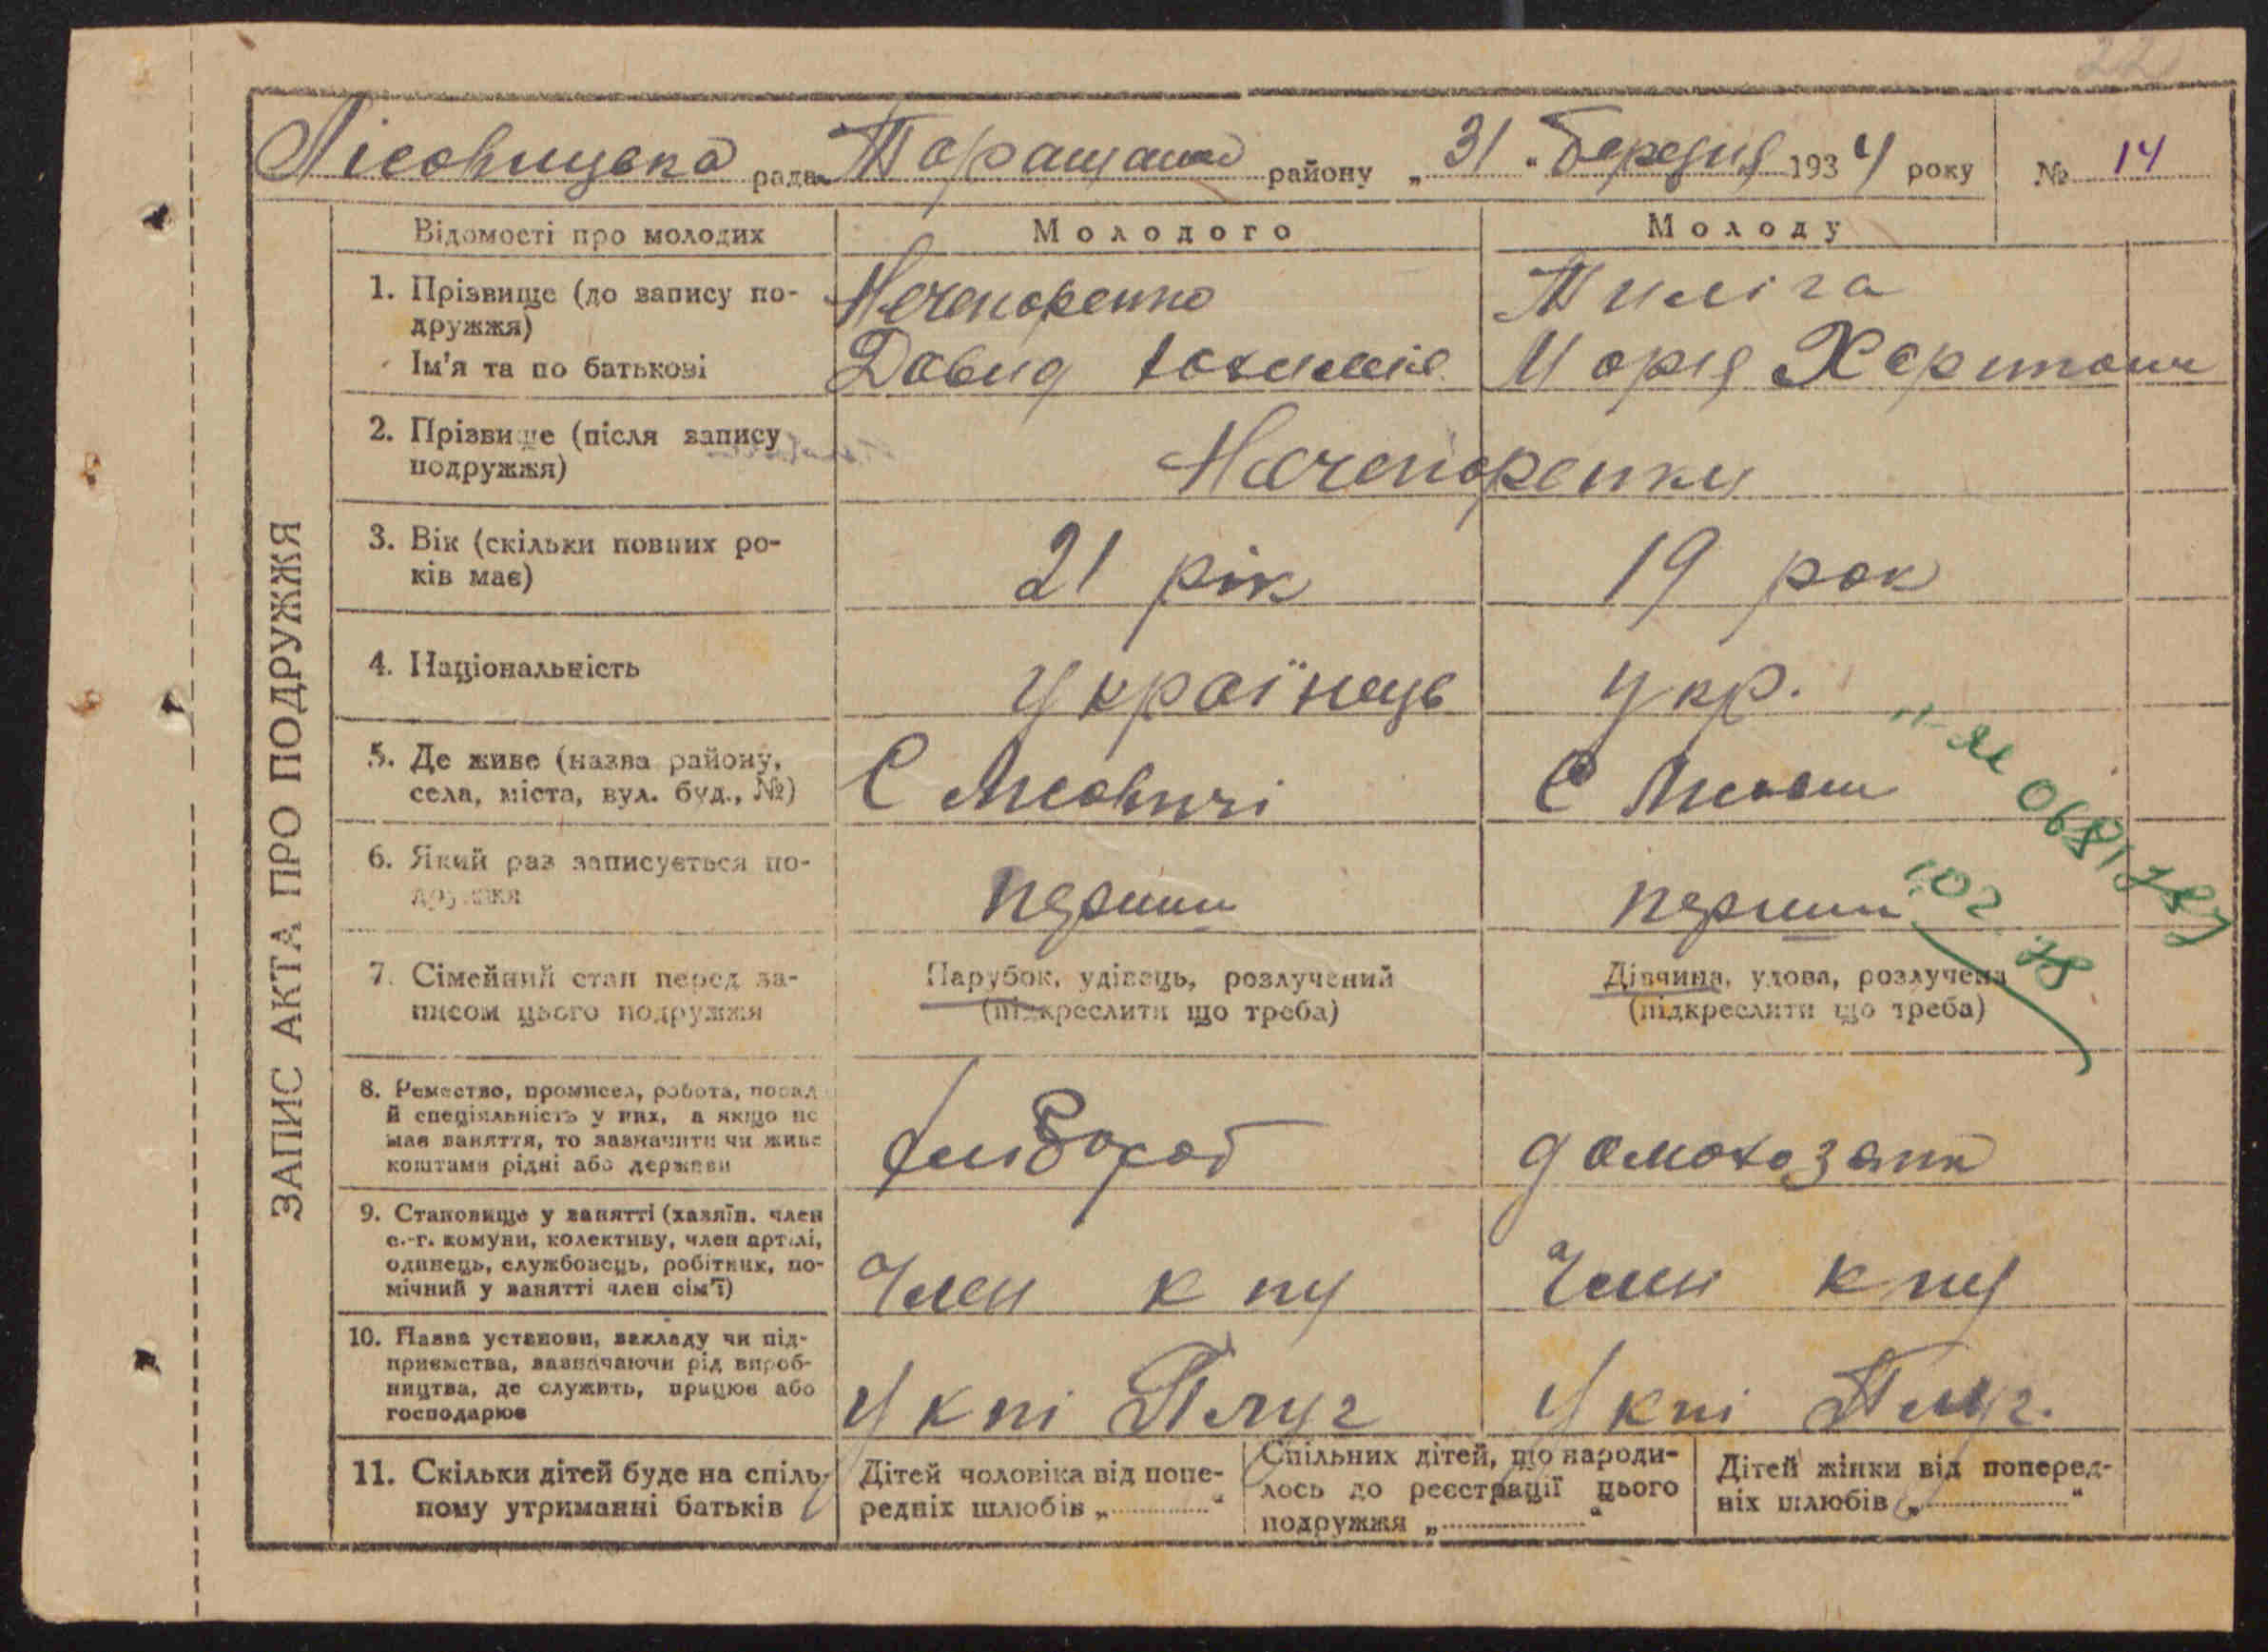 Лісовицька рада Таращанс району „31“ Березня 1934 року № 14
ЗАПИС АКТА ПРО ПОДРУЖЖЯ
Відомості про молодих Молодого Молоду
1. Прізвище (до запису по-
дружжя)
Нечепоренко Теліга
Ім'я та по батькові Давид Марія Харитон
2. Прізвище (після запису
подружжя)
Нечепоренки
3. Вік (скільки повних ро-
ків має)
21 рік 19 рок
4. Національність Українець Укр.
5. Де живе (назва району,
села, міста, вул. буд., №)
С Лісовичі С Лісович
6. Який раз записується по-
дружжя
перший перший
7. Сімейний стан перед за-
писом цього подружжя
Парубок, удівець, розлучений
(підкреслити що треба)
Дівчина, удова, розлучена
(підкреслити що треба)
8. Ремество, промисел, робота, посад
й спеціяльність у них, а якщо не
має заняття, то зазначити чи живе
коштами рідні або держави
9. Становище у занятті (хазяїн. член
с.-г. комуни, колективу, член артілі,
одинець, службовець, робітник, по-
мічний у занятті член сім'ї)
Член к пу Член к пу
10. Назва установи, закладу чи під-
приємства, зазначаючи рід вироб-
ництва, де служить, працює або
господарює
У кпі Плуг У кпі Плуг.
11. Скільки дітей буде на спіль-
ному утриманні батьків
Дітей чоловіка від попе-
редніх шлюбів „ “
Спільних дітей, що народи-
лось до реєстрації цього
подружжя „ “
Дітей жінки від поперед-
ніх шлюбів „ “